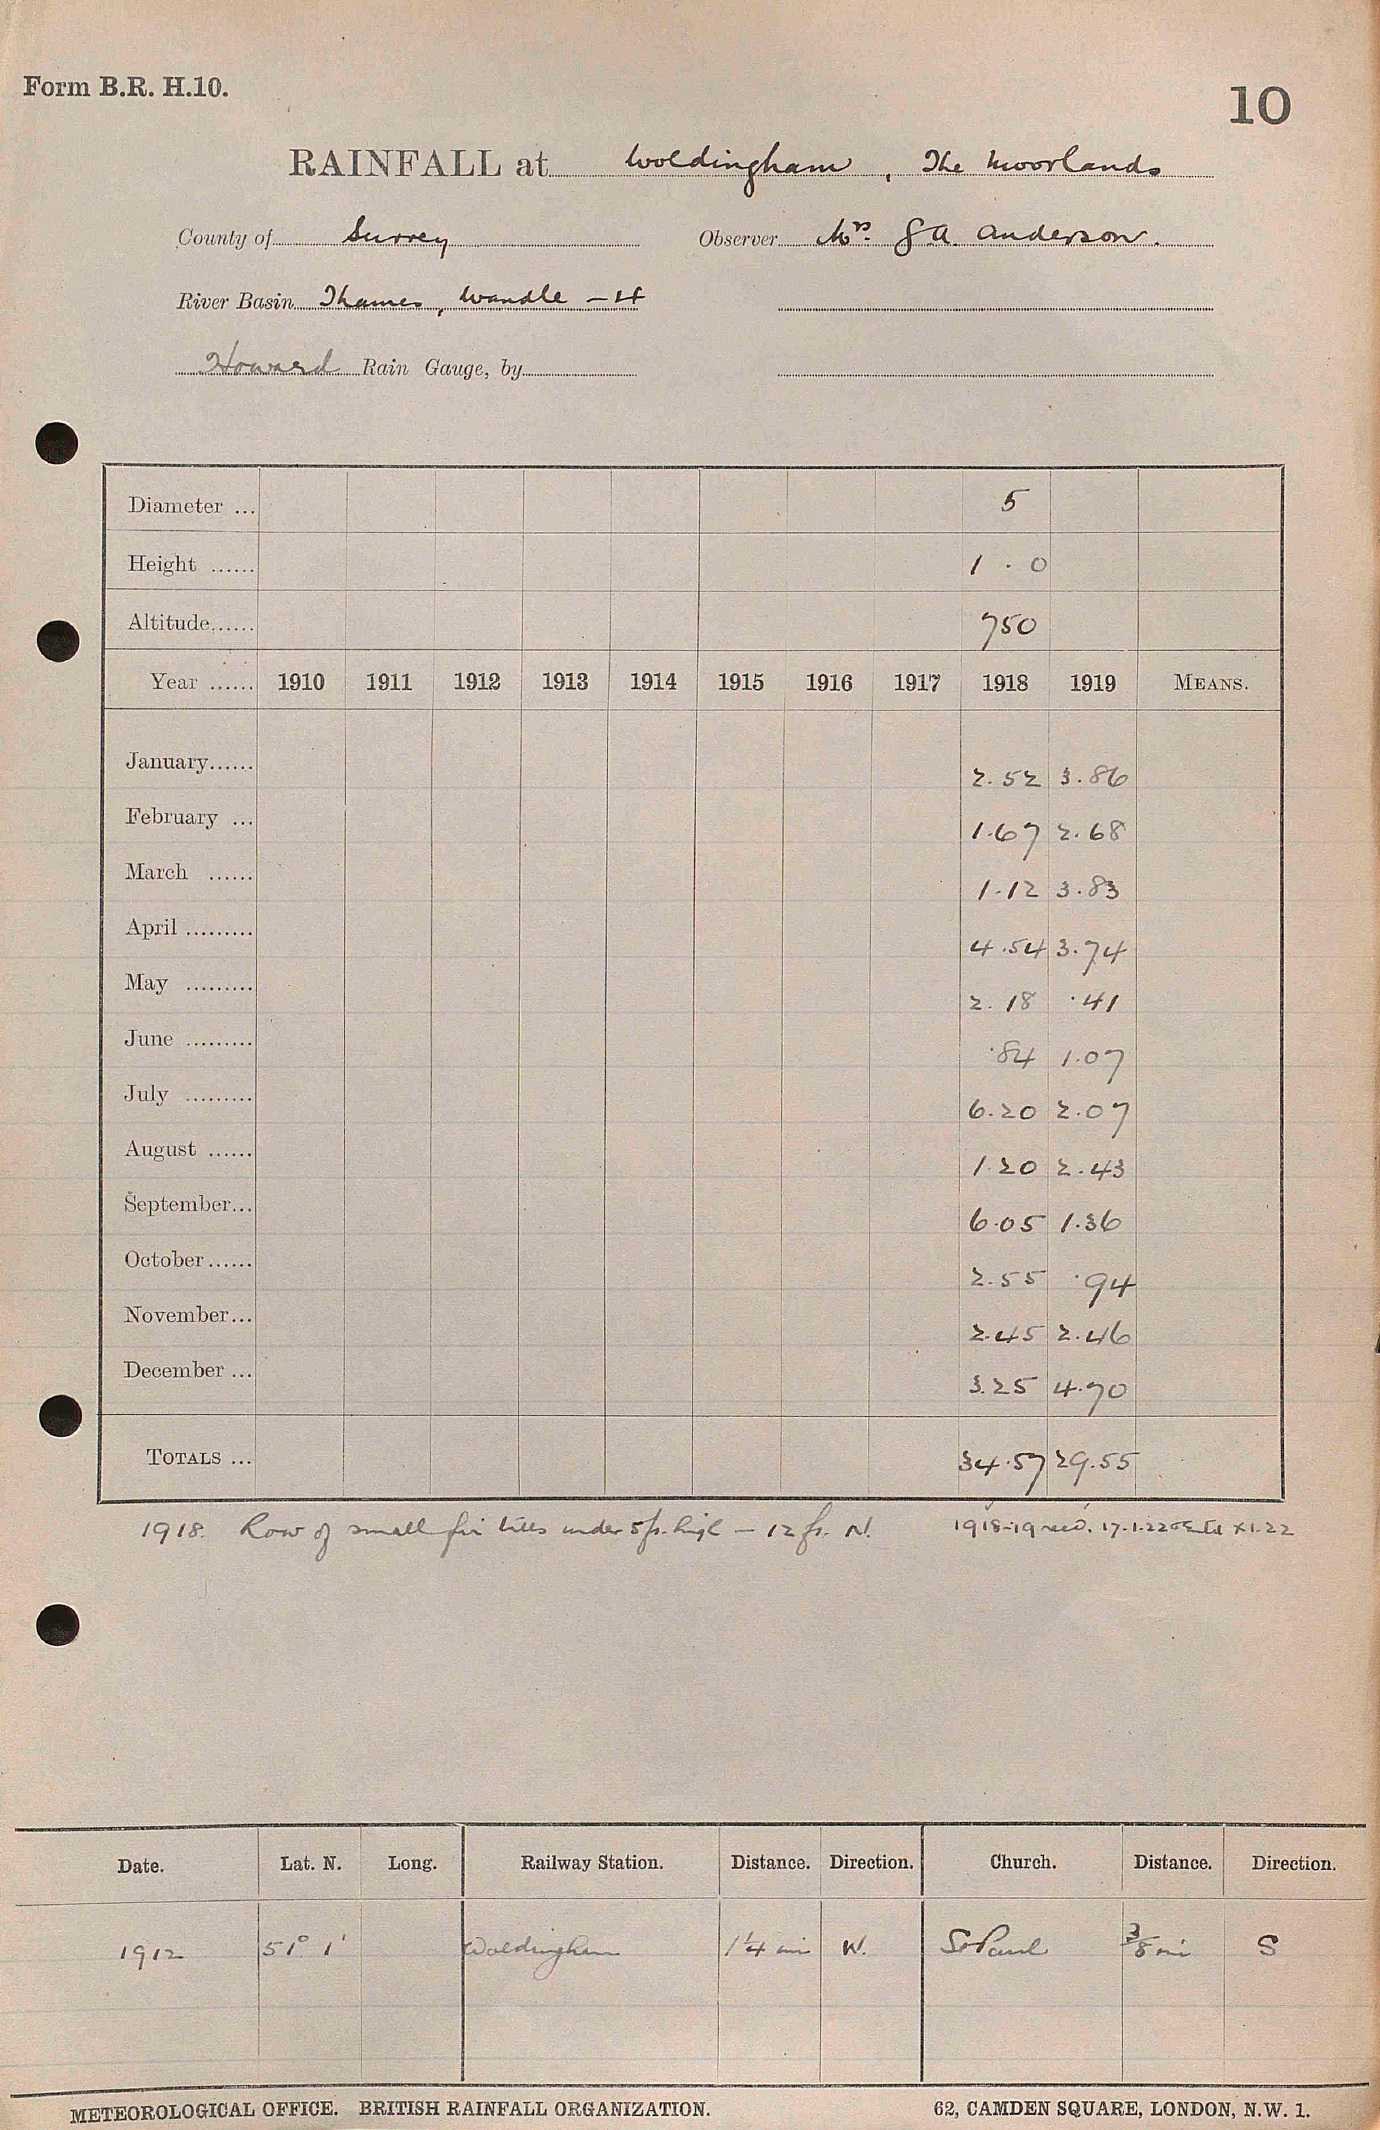 Form B.R. H.10.
10
RAINFALL at Woldingham, The Moorlands
County of Surrey Observer Mrs. G A. Anderson.
River Basin Thames, Wandle – 4
Howard Rain Gauge, by
Diameter ... 5
Height ...... 1 . 0
Altitude...... 750
Year ...... 1910 1911 1912 1913 1914 1915 1916 1917 1918 1919 MEANS.
January...... 2.52 3.86
February ... 1.67 2.68
March ...... 1.12 3.83
April ......... 4.54 3.74
May ......... 2.18 .41
June ......... .84 1.07
July ......... 6.20 2.07
August ...... 1.20 2.43
September... 6.05 1.36
October...... 2.55 .94
November... 2.45 2.46
December ... 3.25 4.70
TOTALS ... 34.57 29.55
1918. Row of small fir trees under 5 ft. high – 12 ft. N. 1918-19 recd. 17.1.22
Date. Lat. N. Long. Railway Station. Distance. Direction. Church. Distance. Direction.
1912 51° 1' Woldingham 1 1/4 mi W. St Paul 3/8 mi S
METEOROLOGICAL OFFICE. BRITISH RAINFALL ORGANIZATION. 62, CAMDEN SQUARE, LONDON, N.W. 1.